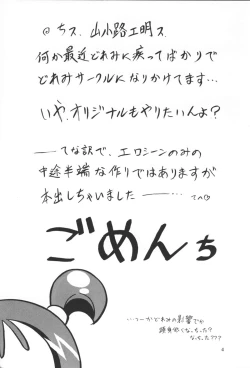 @ちス. 山小路工明ス.
何か最近どれみに疾ってばかりで
どれみサークルになりかけてます…
いや、オリジナルもやりたいんよ？
――てな訳で、エロシーンのみの
中途半端な作りではありますが
本出しちゃいました――…
ごめんち
…つーかどれみの影響でか
なっちった???
4